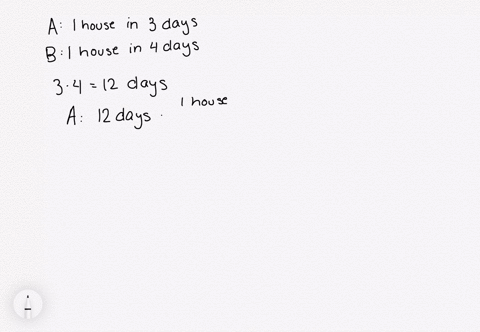 A: 1 house in 3 days
B: 1 house in 4 days
3·4 = 12 days
1 house
A: 12 days ·